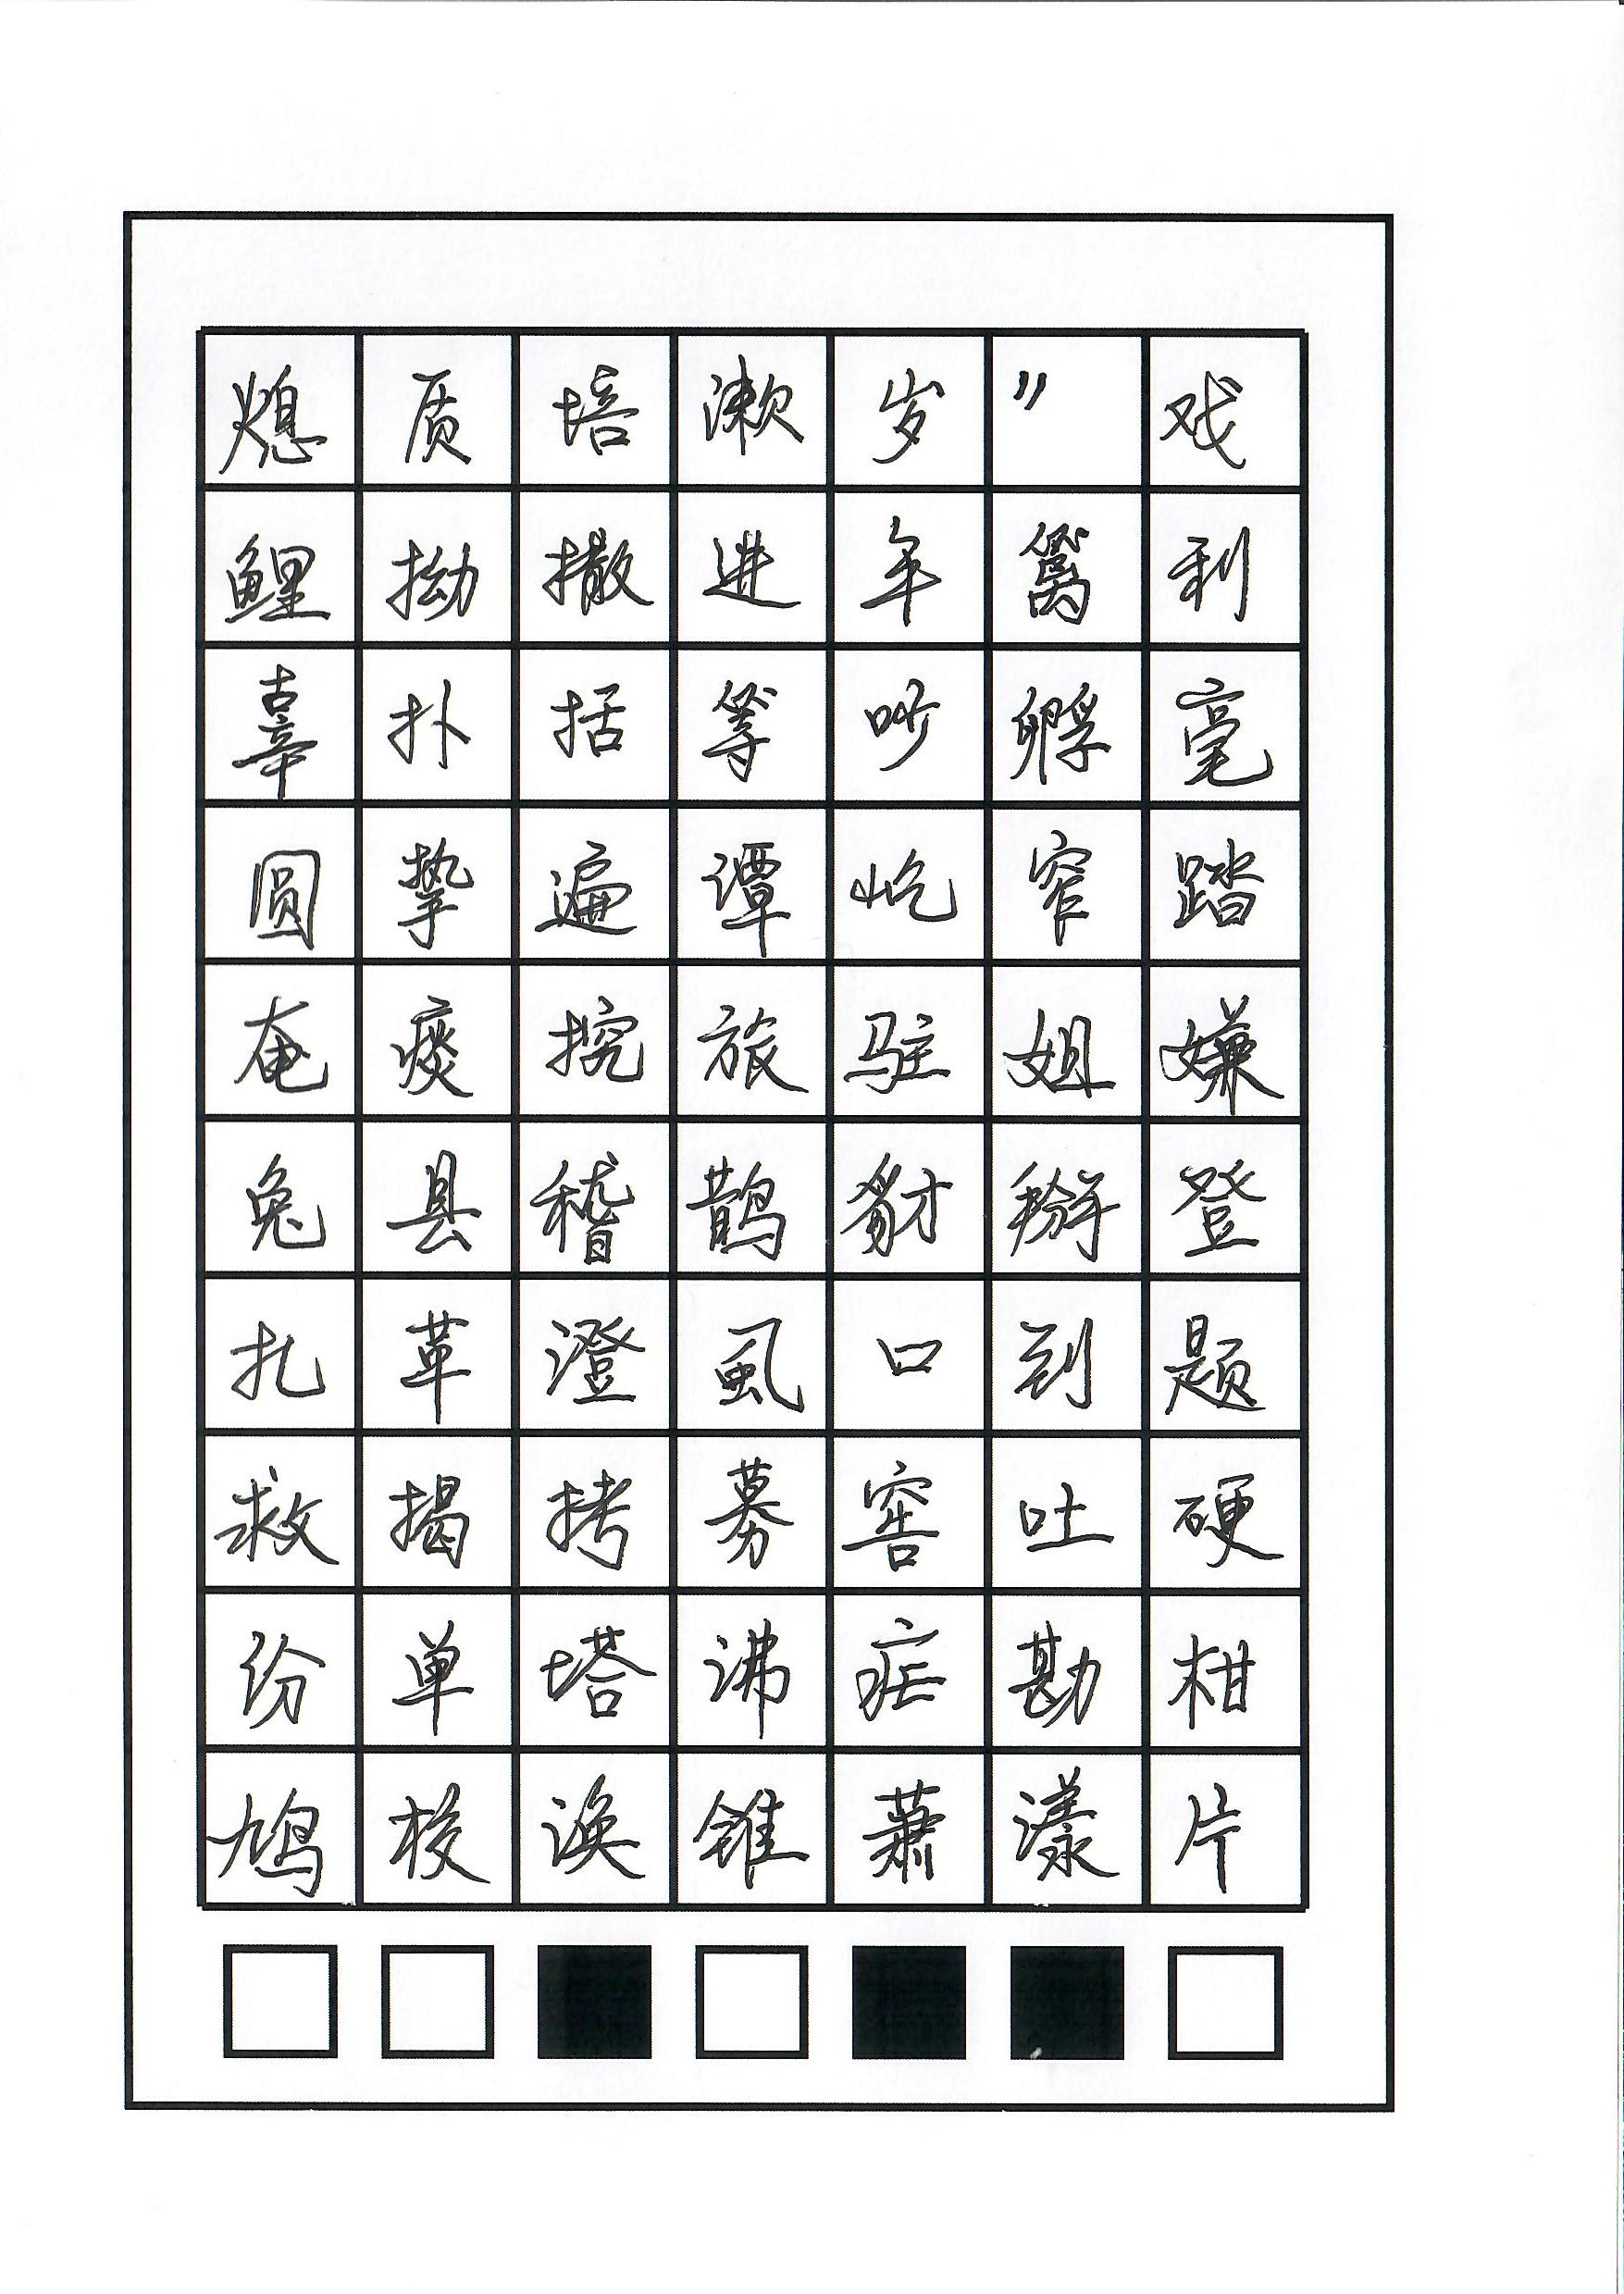 熄质培漱岁”戏
鲤拗撒进年篱利
辜扑括等吵孵毫
圆挚遍谭屹窄踏
奄痰挖旅驻姐嫌
兔县稽鹊豺掰登
扎革澄虱口到题
救揭拷募窖吐硬
份单塔沸疟勘柑
鸠梭涣锥萧漾片